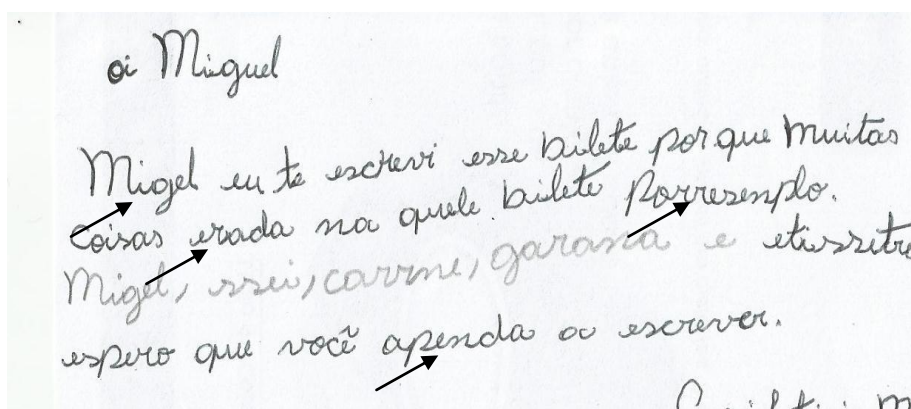 oi Miguel
Migel eu te escrevi esse bilete por que muitas
Coisas erada na quele bilete Porresemplo.
Migel, ssei, carrne, garana e etissetre
espero que você apenda a escrever.